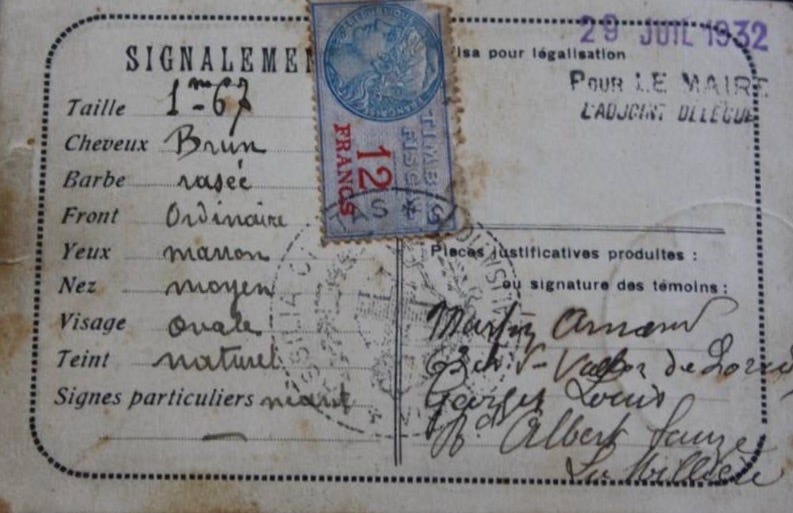 SIGNALEMEN
Taille 1m 67
Cheveux Brun
Barbe rasée
Front Ordinaire
Yeux marron
Nez moyen
Visage ovale
Teint naturel
Signes particuliers néant
TIMBRE
FISCAL
12
FRANCS
29 JUIL 1932
isa pour légalisation
POUR LE MAIRE
L'ADJOINT DÉLÉGUÉ
Pièces justificatives produites :
ou signature des témoins :
Martin Armand
63 ch. St
Georges Louis
Bd Albert
La Millière